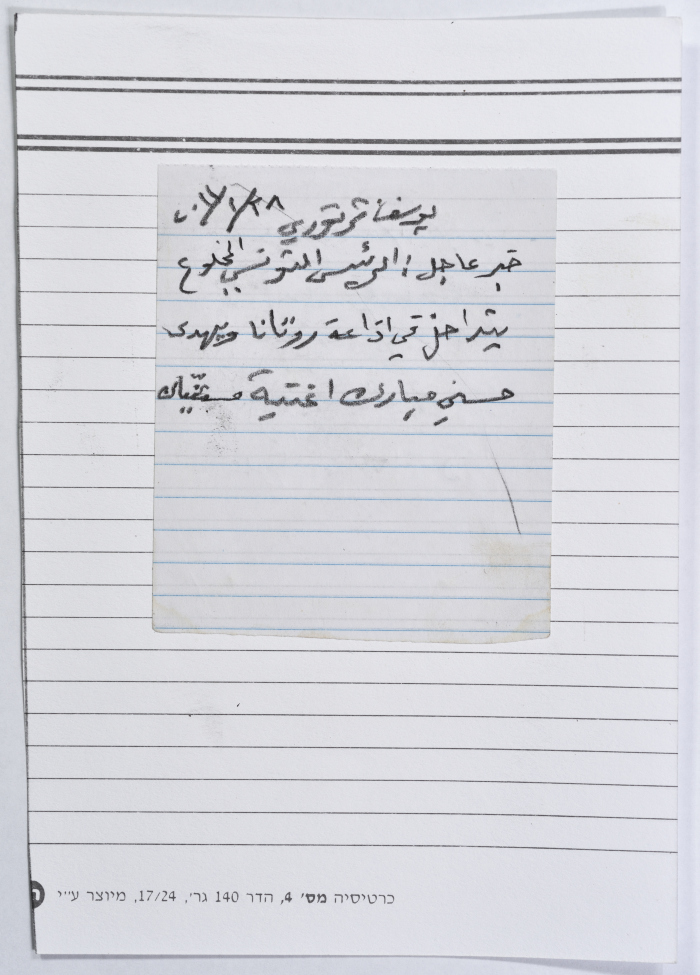 يوسف ترتوري ٢٨/١/٢٠١١
خبر عاجل: الرئيس التونسي المخلوع
يتداخل في اذاعة روتانا ويهدى
حسني مبارك اغنية مستنّياك
כרטיסיה מס׳ 4, הדר 140 גר׳, 17/24, מיוצר ע״י